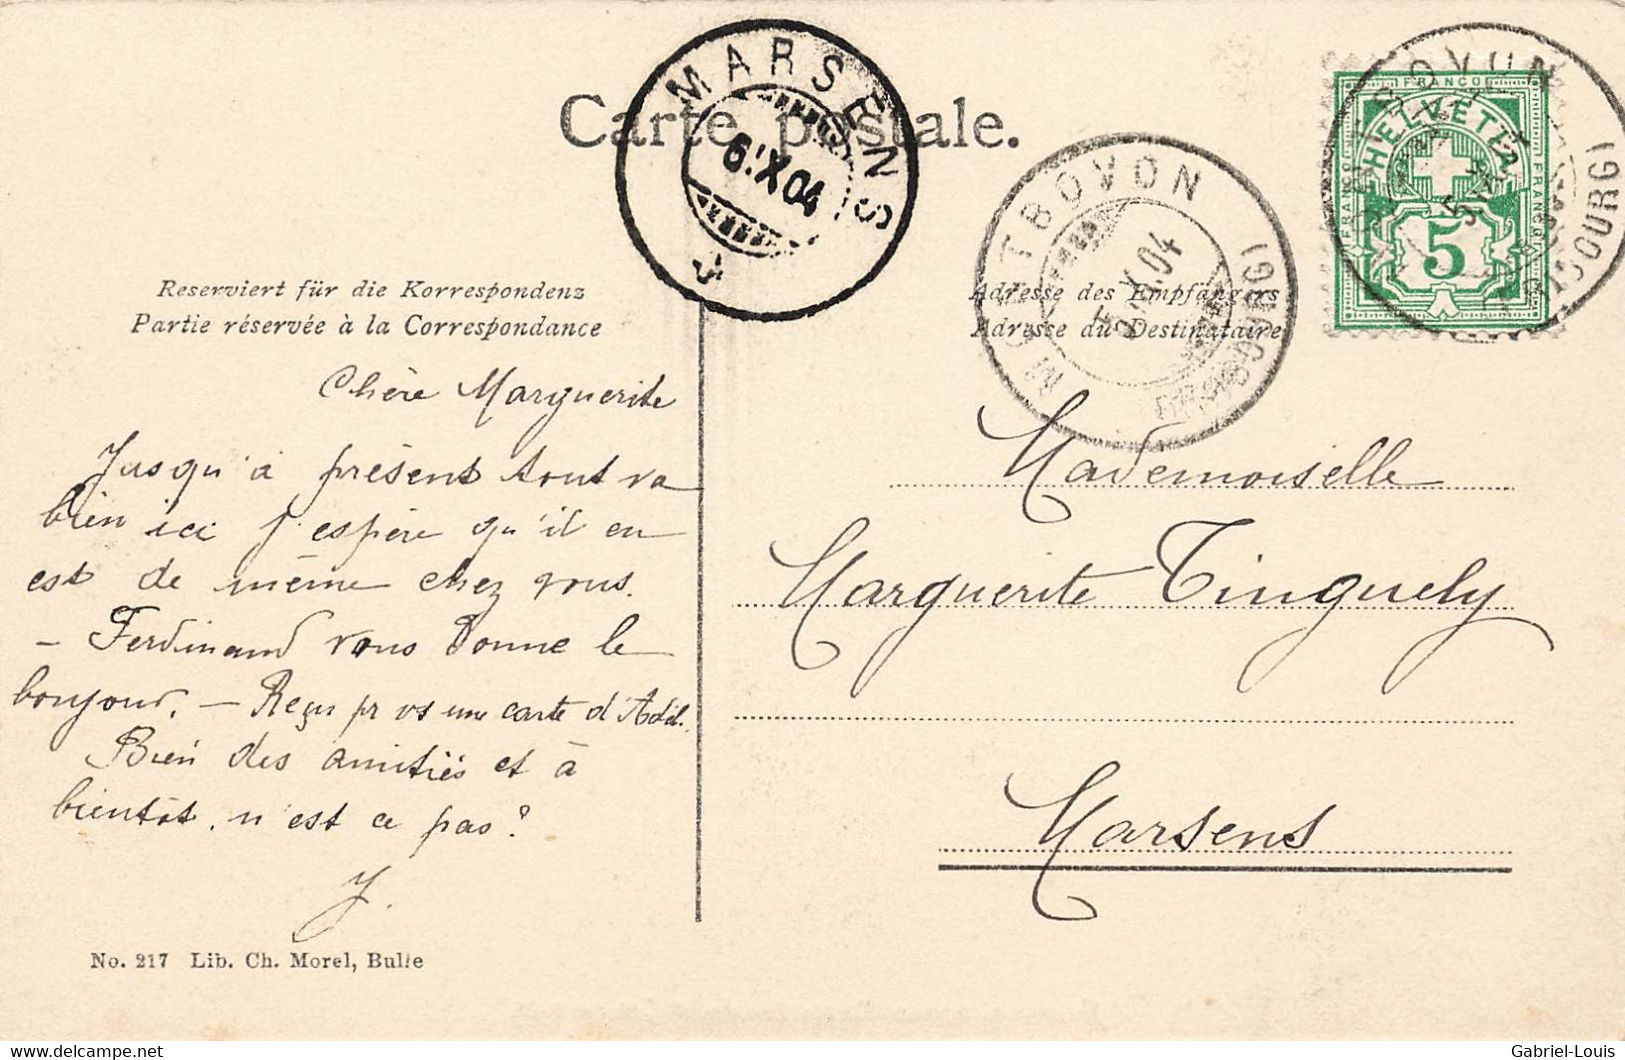 Carte postale.
MARSENS
6.X.04
MONTBOVON
X.04
(FRIBOURG)
FRANCO
HELVETIA
FRANCO
FRANCO
5
BOVON
(FRIBOURG)
Reserviert für die Korrespondenz
Partie réservée à la Correspondance
Adresse des Empfängers
Adresse du Destinataire
Chère Marguerite
Jusqu'à présent tout va
bien ici j'espère qu'il en
est de même chez vous.
– Ferdinand vous donne le
bonjour. – Reçu pr vs une carte d'Adèl.
Bien des amitiés et à
bientôt, n'est ce pas?
J.
Mademoiselle
Marguerite Tinguely
Marsens
No. 217 Lib. Ch. Morel, Bulle
www.delcampe.net
Gabriel-Louis